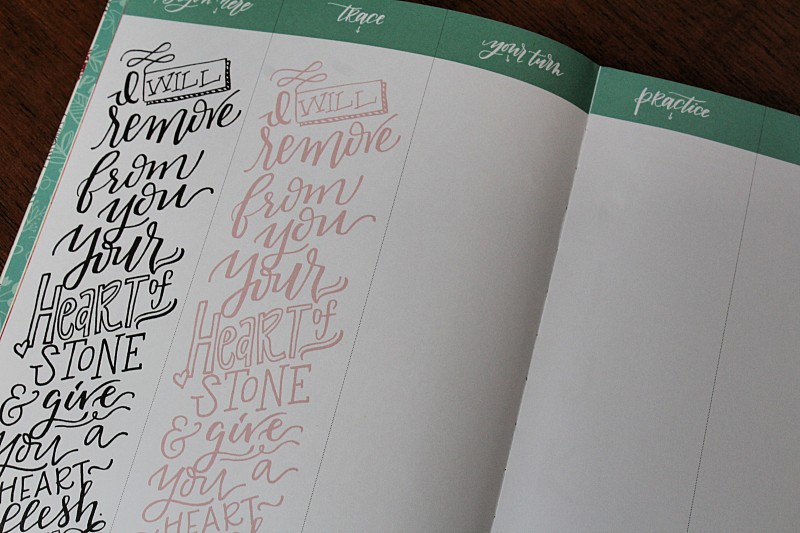 trace
your turn
practice
I WILL
remove
from
you
your
HEART of
STONE
& give
you a
HEART
flesh
I WILL
remove
from
you
your
HEART of
STONE
& give
you a
HEART